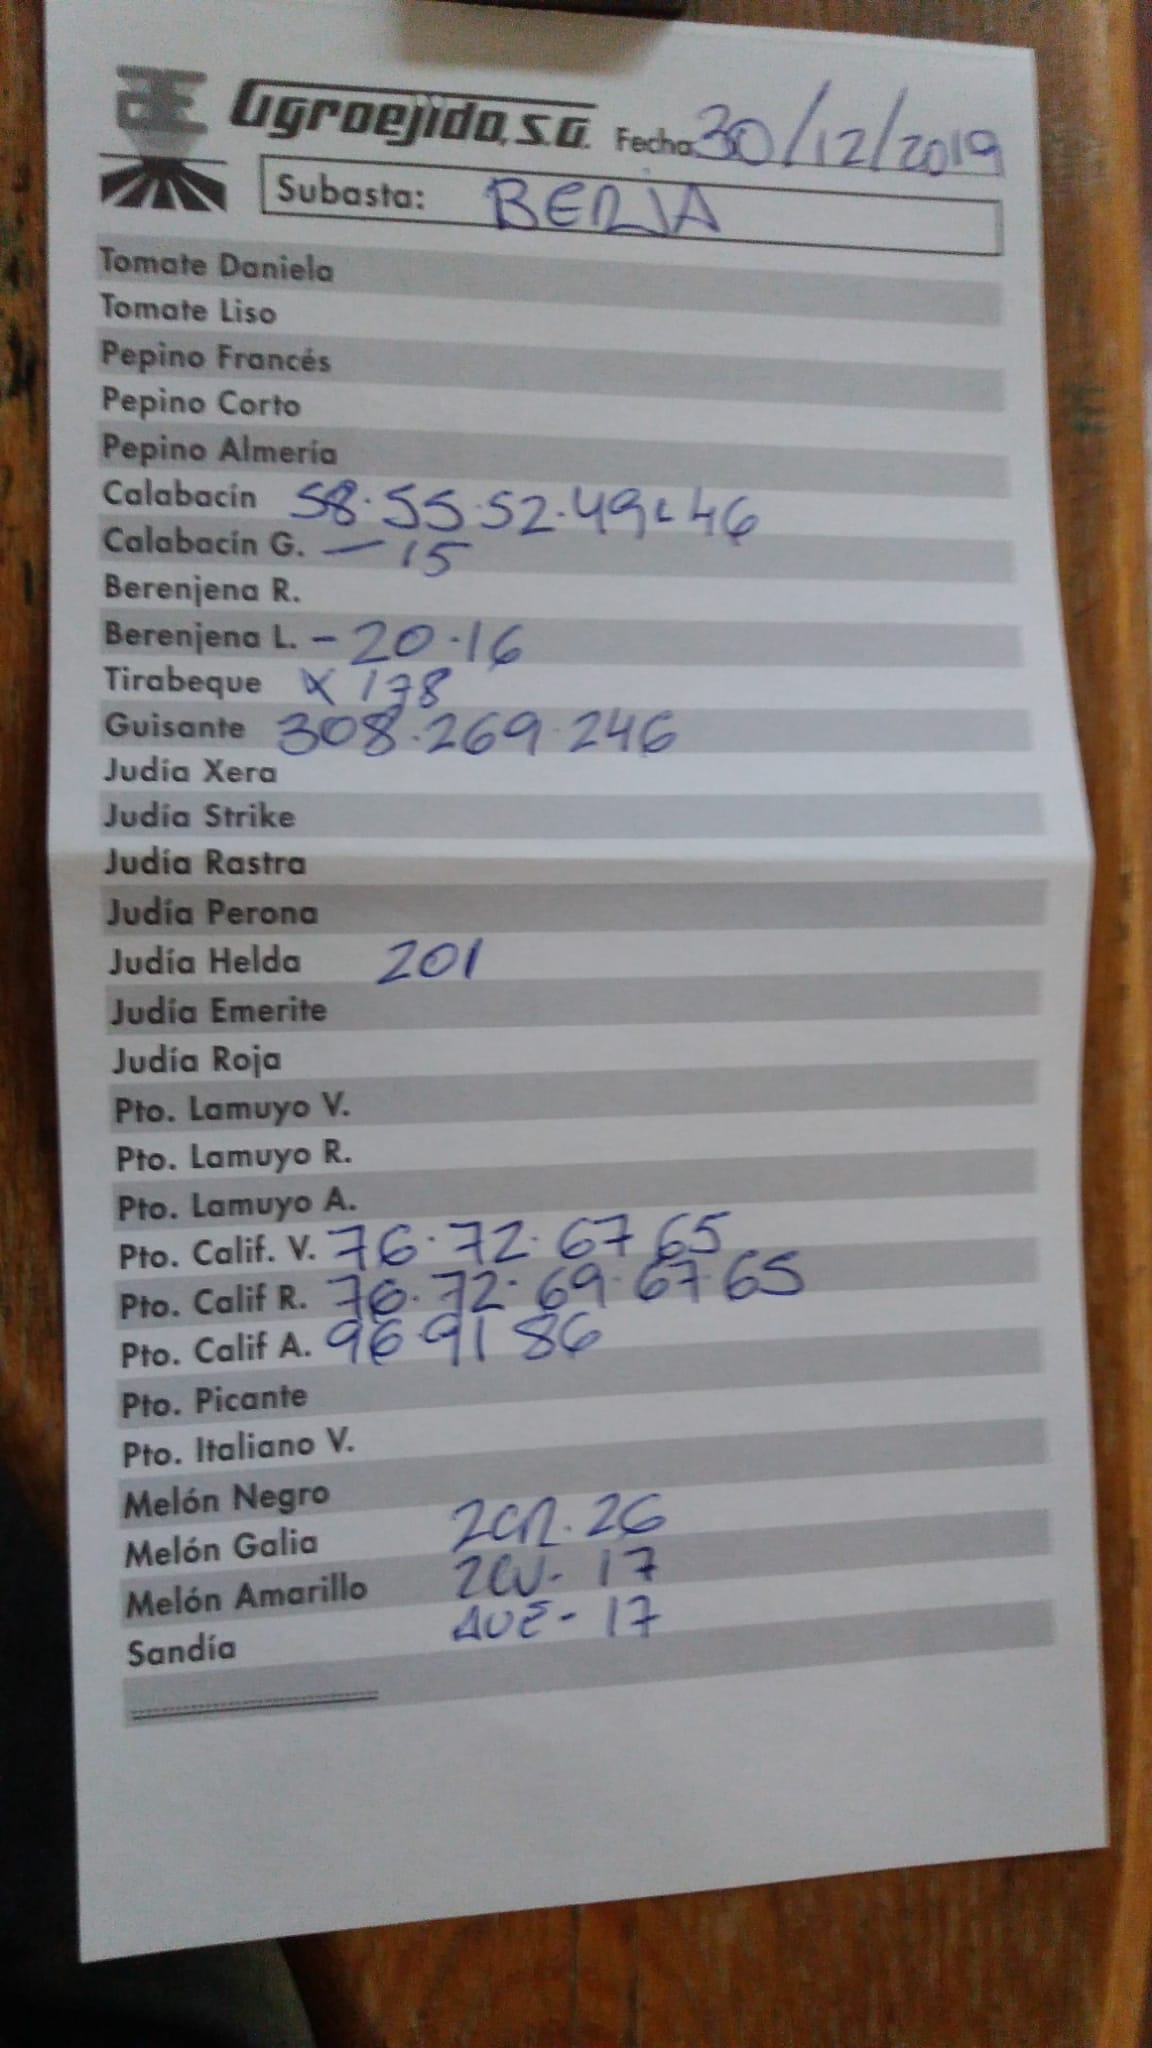 Agroejido, S.A. Fecha 30/12/2019
Subasta: BERJA
Tomate Daniela
Tomate Liso
Pepino Francés
Pepino Corto
Pepino Almería
Calabacín 58·55·52·49·46
Calabacín G. — 15
Berenjena R.
Berenjena L. - 20·16
Tirabeque X 178
Guisante 308·269·246
Judía Xera
Judía Strike
Judía Rastra
Judía Perona
Judía Helda 201
Judía Emerite
Judía Roja
Pto. Lamuyo V.
Pto. Lamuyo R.
Pto. Lamuyo A.
Pto. Calif. V. 76·72·67 65
Pto. Calif R. 76·72·69·67·65
Pto. Calif A. 96·91 86
Pto. Picante
Pto. Italiano V.
Melón Negro
Melón Galia 2CR. 26
Melón Amarillo 2CV- 17
Sandía AVE- 17